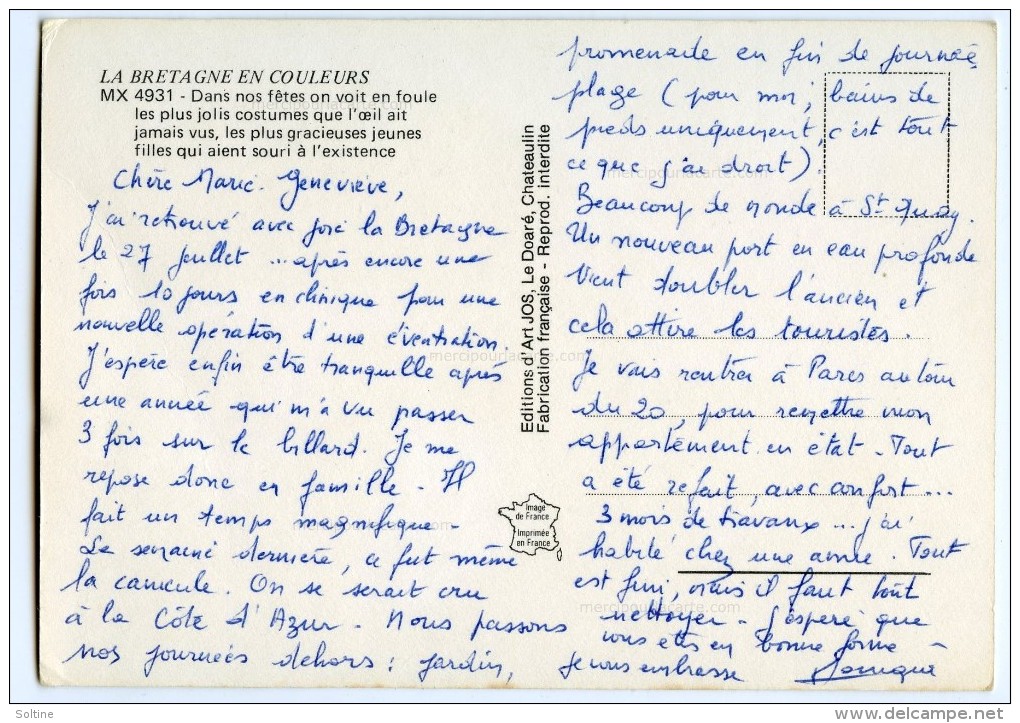 LA BRETAGNE EN COULEURS
MX 4931 - Dans nos fêtes on voit en foule
les plus jolis costumes que l'œil ait
jamais vus, les plus gracieuses jeunes
filles qui aient souri à l'existence
Chère Marie-Geneviève,
J'ai retrouvé avec joie la Bretagne
le 27 juillet ... après encore une
fois 10 jours en clinique pour une
nouvelle opération d'une éventration.
J'espère enfin être tranquille après
une année qui m'a vu passer
3 fois sur le billard. Je me
repose donc en famille - Il
fait un temps magnifique -
La semaine dernière, ce fut même
la canicule. On se serait cru
à la Côte d'Azur - Nous passons
nos journées dehors : jardin,
promenade en fin de journée,
plage (pour moi, bains de
pieds uniquement, c'est tout
ce que j'ai droit).
Beaucoup de monde à St Quay.
Un nouveau port en eau profonde
vient doubler l'ancien et
cela attire les touristes.
Je vais rentrer à Paris autour
du 20, pour remettre mon
appartement en état - Tout
a été refait, avec confort ...
3 mois de travaux ... j'ai
habité chez une amie. Tout
est fini, mais il faut tout
nettoyer - J'espère que
vous êtes en bonne forme -
Je vous embrasse
Editions d'Art JOS, Le Doaré, Chateaulin
Fabrication française - Reprod. interdite
Image
de France
Imprimée
en France
mercipourlacarte.com
mercipourlacarte.com
mercipourlacarte.com
mercipourlacarte.com
mercipourlacarte.com
Soltine
http://www.delcampe.net